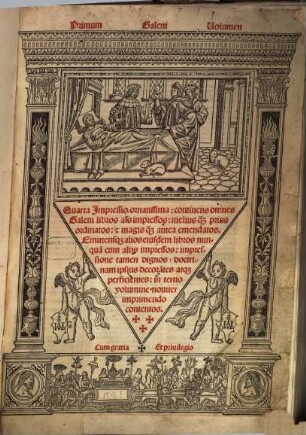 Primum Galeni Volumen
Quarta Impressio ornatissima: continens omnes
Galeni libros alias impressos: melius qz prius
ordinatos: et magis qz antea emendatos.
Emittensqz alios eiusdem libros nun-
quã cum alijs impressos: impres-
sione tamen dignos: doctri-
nam ipsius decorãtes atqz
perficiẽtes: in tertio
volumine nouiter
imprimendo
contentos.
Cum gratia Et priuilegio